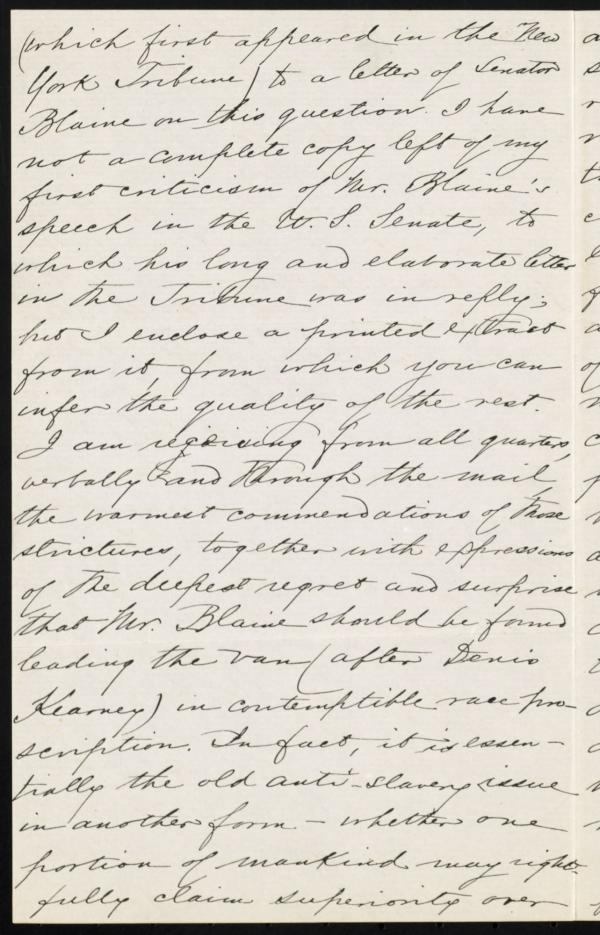 (which first appeared in the New
York Tribune) to a letter of Senator
Blaine on this question. I have
not a complete copy left of my
first criticism of Mr. Blaine's
speech in the U. S. Senate, to
which his long and elaborate letter
in the Tribune was in reply;
but I enclose a printed extract
from it, from which you can
infer the quality of the rest.
I am receiving from all quarters,
verbally and through the mail,
the warmest commendations of those
strictures, together with expressions
of the deepest regret and surprise
that Mr. Blaine should be found
leading the van (after Denis
Kearney) in contemptible race pro-
scription. In fact, it is essen-
tially the old anti-slavery issue
in another form - whether one
portion of mankind may right-
fully claim superiority over